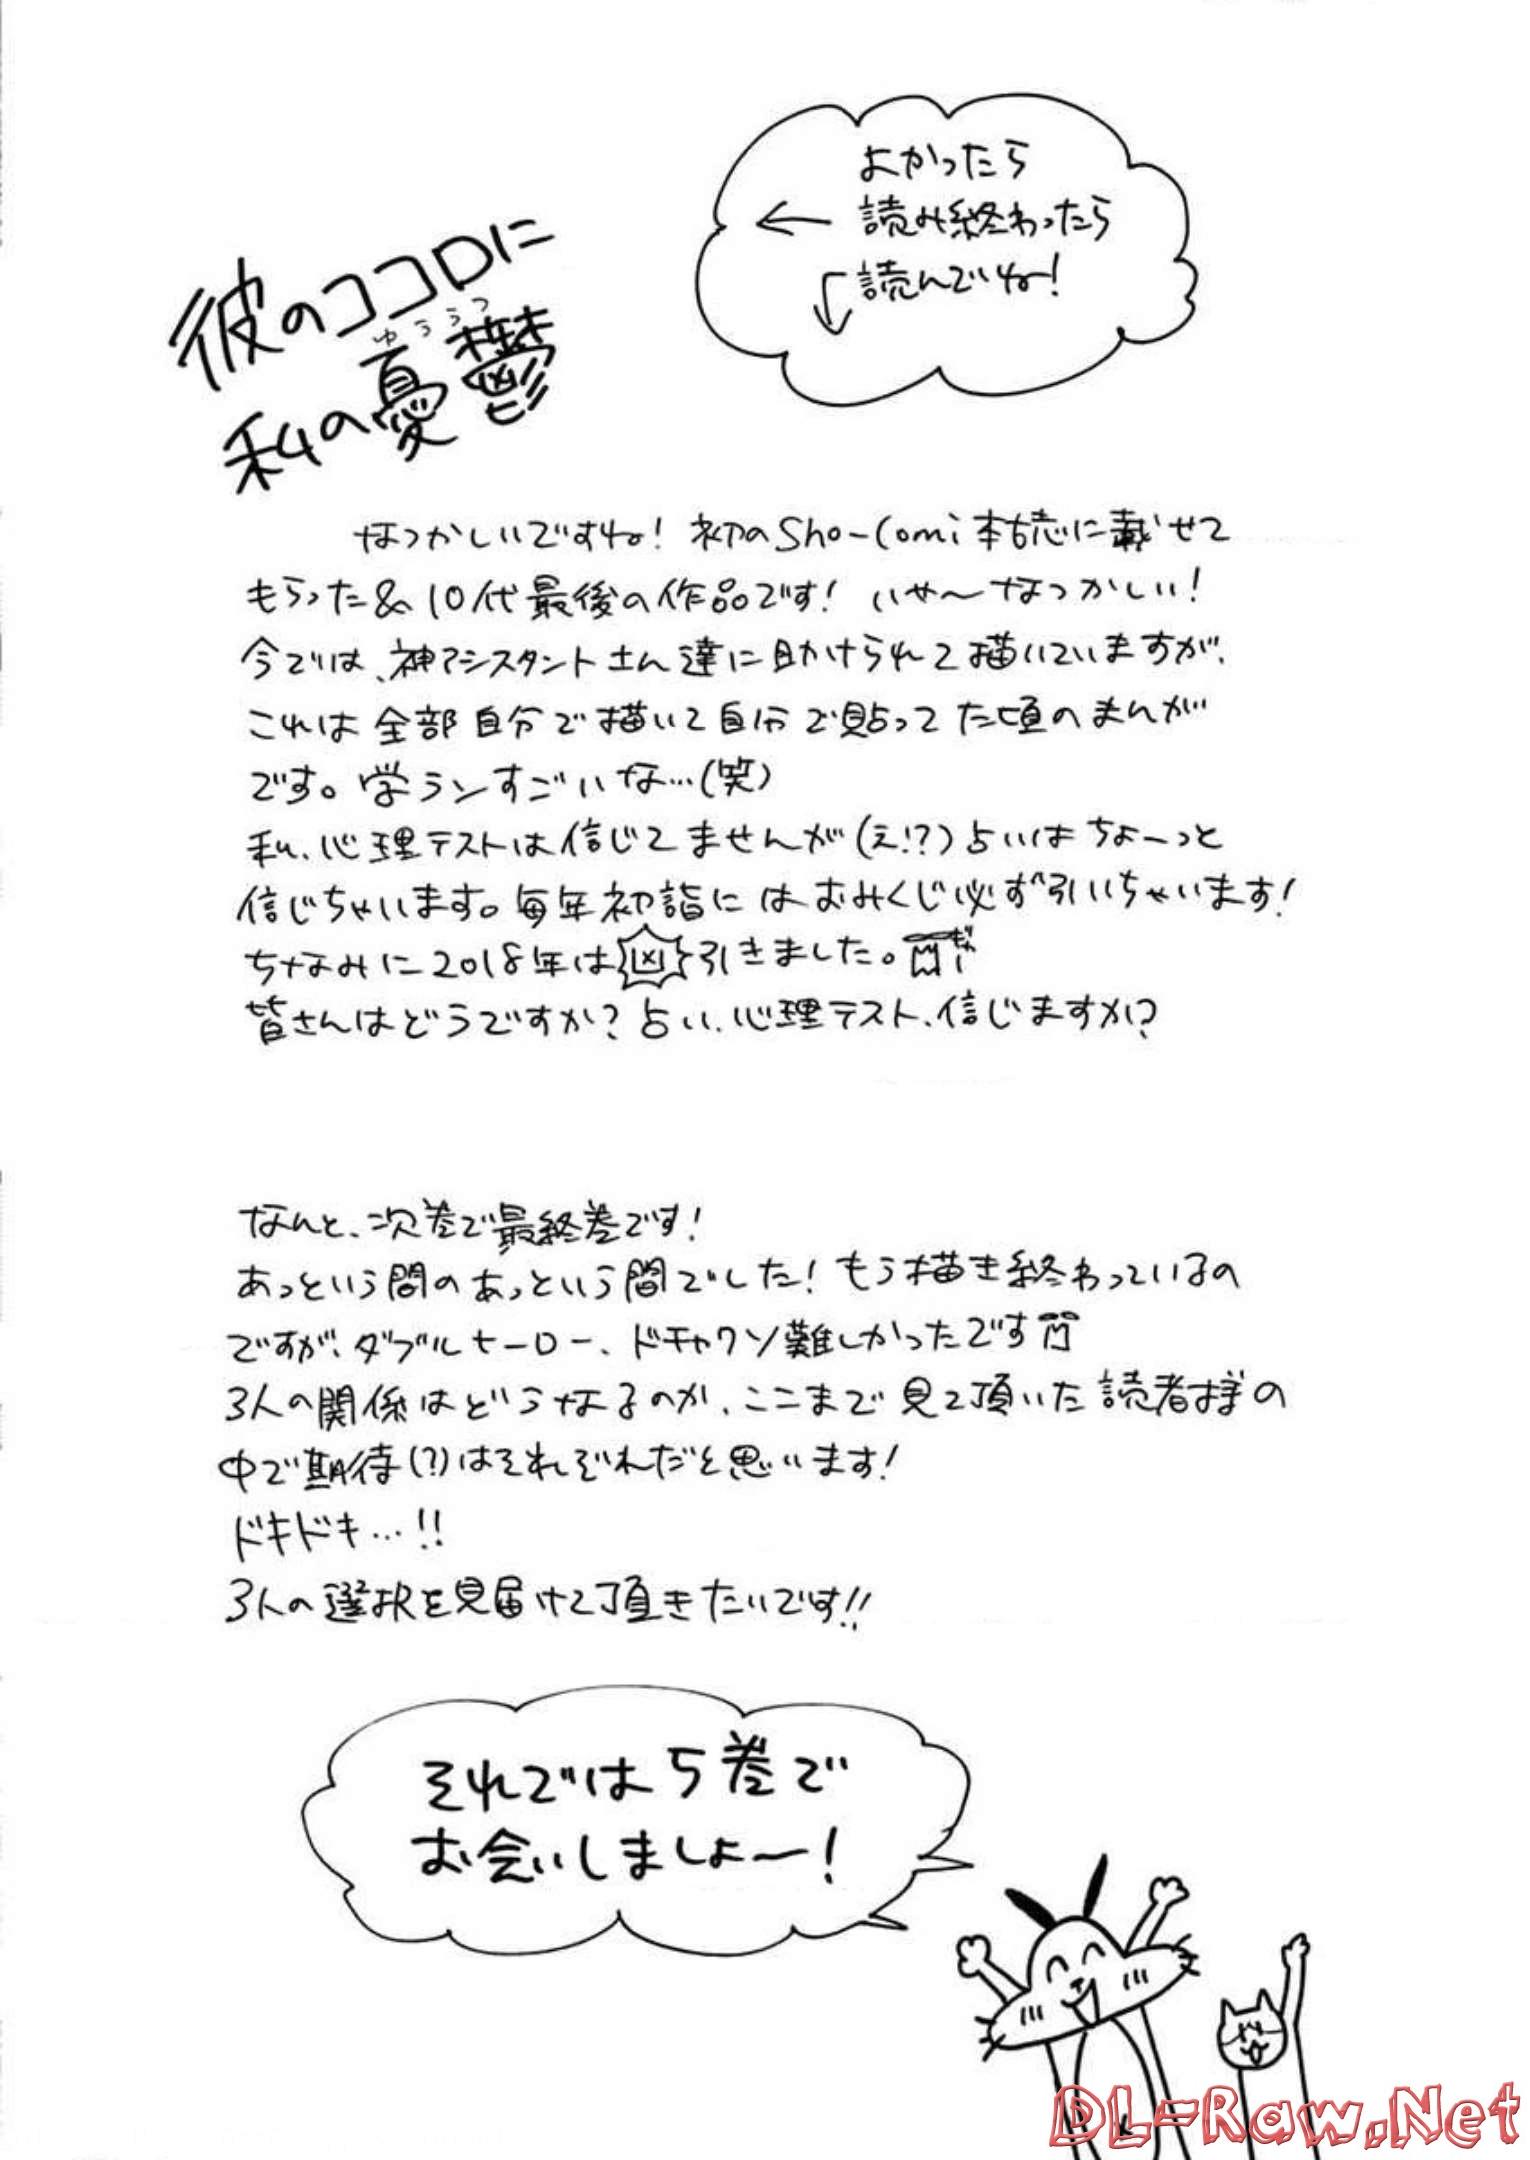 よかったら
← 読み終わったら
↓ 読んでいね!
彼のココロに
ゆううつ
私の憂鬱
なつかしいですね! 初のSho-Comi本誌に載せて
もらった&10代最後の作品です! いや〜なつかしい!
今では、神アシスタントさん達に助けられて描いていますが、
これは全部自分で描いて自分で貼ってた頃のまんが
です。学ランすごいな…(笑)
私、心理テストは信じてませんが(え!?)占いはちょーっと
信じちゃいます。毎年初詣にはおみくじ必ず引いちゃいます!
ちなみに2018年は凶引きました。
皆さんはどうですか? 占い、心理テスト、信じますか?
なんと、次巻で最終巻です!
あっという間のあっという間でした! もう描き終わっているの
ですが、ダブルヒーロー、ドチャクソ難しかったです
3人の関係はどうなるのか、ここまで見て頂いた読者様の
中で期待(?)はそれぞれだと思います!
ドキドキ…!!
3人の選択を見届けて頂きたいです!!
それでは5巻で
お会いしましょ〜!
DL-Raw.Net